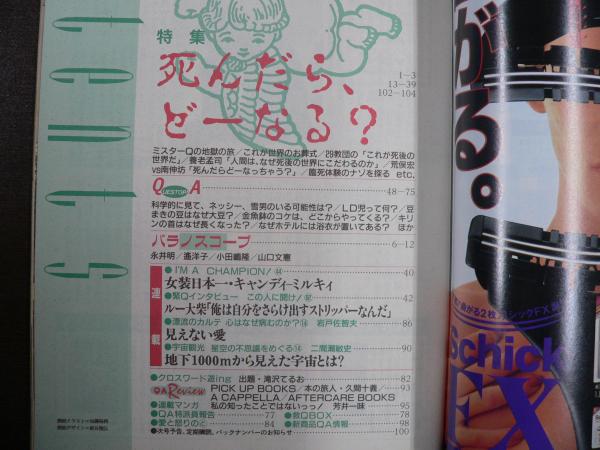 特集
死んだら、
どーなる?
1－3
13－39
102－104
ミスターQの地獄の旅／これが世界のお葬式／29教団の「これが死後の
世界だ」／養老孟司「人間は、なぜ死後の世界にこだわるのか」／荒俣宏
vs南伸坊「死んだらどーなっちゃう?」／臨死体験のナゾを探る etc.
QUESTION A 48－75
科学的に見て、ネッシー、雪男のいる可能性は?／LD児って何?／豆
まきの豆はなぜ大豆?／金魚鉢のコケは、どこからやってくる?／キリ
ンの首はなぜ長くなった?／なぜホテルには浴衣が置いてある? ほか
パラノスコープ 6－12
永井明／遙洋子／小田嶋隆／山口文憲
連載
●I'M A CHAMPION! 44 40
女装日本一・キャンディ・ミルキィ
●緊Qインタビュー この人に聞け! 42
ルー大柴「俺は自分をさらけ出すストリッパーなんだ」
●漂流のカルテ 心はなぜ病むのか? 岩戸佐智夫 86
見えない愛
●宇宙観光 星空の不思議をめぐる 二間瀬敏史 90
地下1000mから見えた宇宙とは?
●クロスワード遊ing 出題・滝沢てるお 82
QA Review PICK UP BOOKS／本の旅人・久間十義／ 93
A CAPPELLA／AFTERCARE BOOKS 95
●連載マンガ 私の知ったことではないっっ! 芳井一味
●QA特派員報告 77 ●救QBOX 78
●愛と怒りの 84 ●新商品QA情報 98
●次号予告、定期購読、バックナンバーのお知らせ 100
がる。
Schick
FX